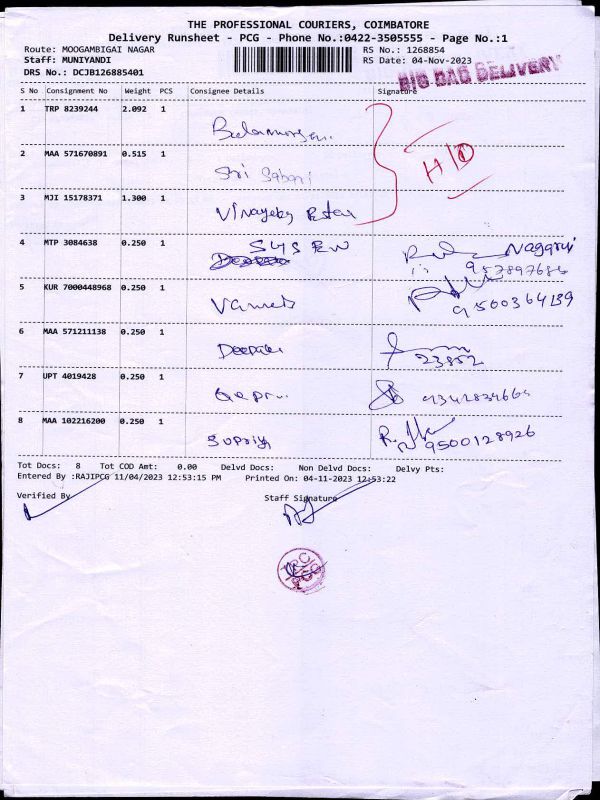 THE PROFESSIONAL COURIERS, COIMBATORE
Delivery Runsheet - PCG - Phone No.:0422-3505555 - Page No.:1
Route: MOOGAMBIGAI NAGAR RS No.: 1268854
Staff: MUNIYANDI RS Date: 04-Nov-2023
DRS No.: DCJB126885401
BIG BAG DELIVERY
S No Consignment No Weight PCS Consignee Details Signature
1 TRP 8239244 2.092 1
H/D
2 MAA 571670891 0.515 1 Sri Sabari
3 MJI 15178371 1.300 1
4 MTP 3084638 0.250 1
Nagaraj
5 KUR 7000448968 0.250 1
9500364139
6 MAA 571211138 0.250 1
23852
7 UPT 4019428 0.250 1
8 MAA 102216200 0.250 1 Supriya
9500128926
Tot Docs: 8 Tot COD Amt: 0.00 Delvd Docs: Non Delvd Docs: Delvy Pts:
Entered By :RAJIPCG 11/04/2023 12:53:15 PM Printed On: 04-11-2023 12:53:22
Verified By Staff Signature